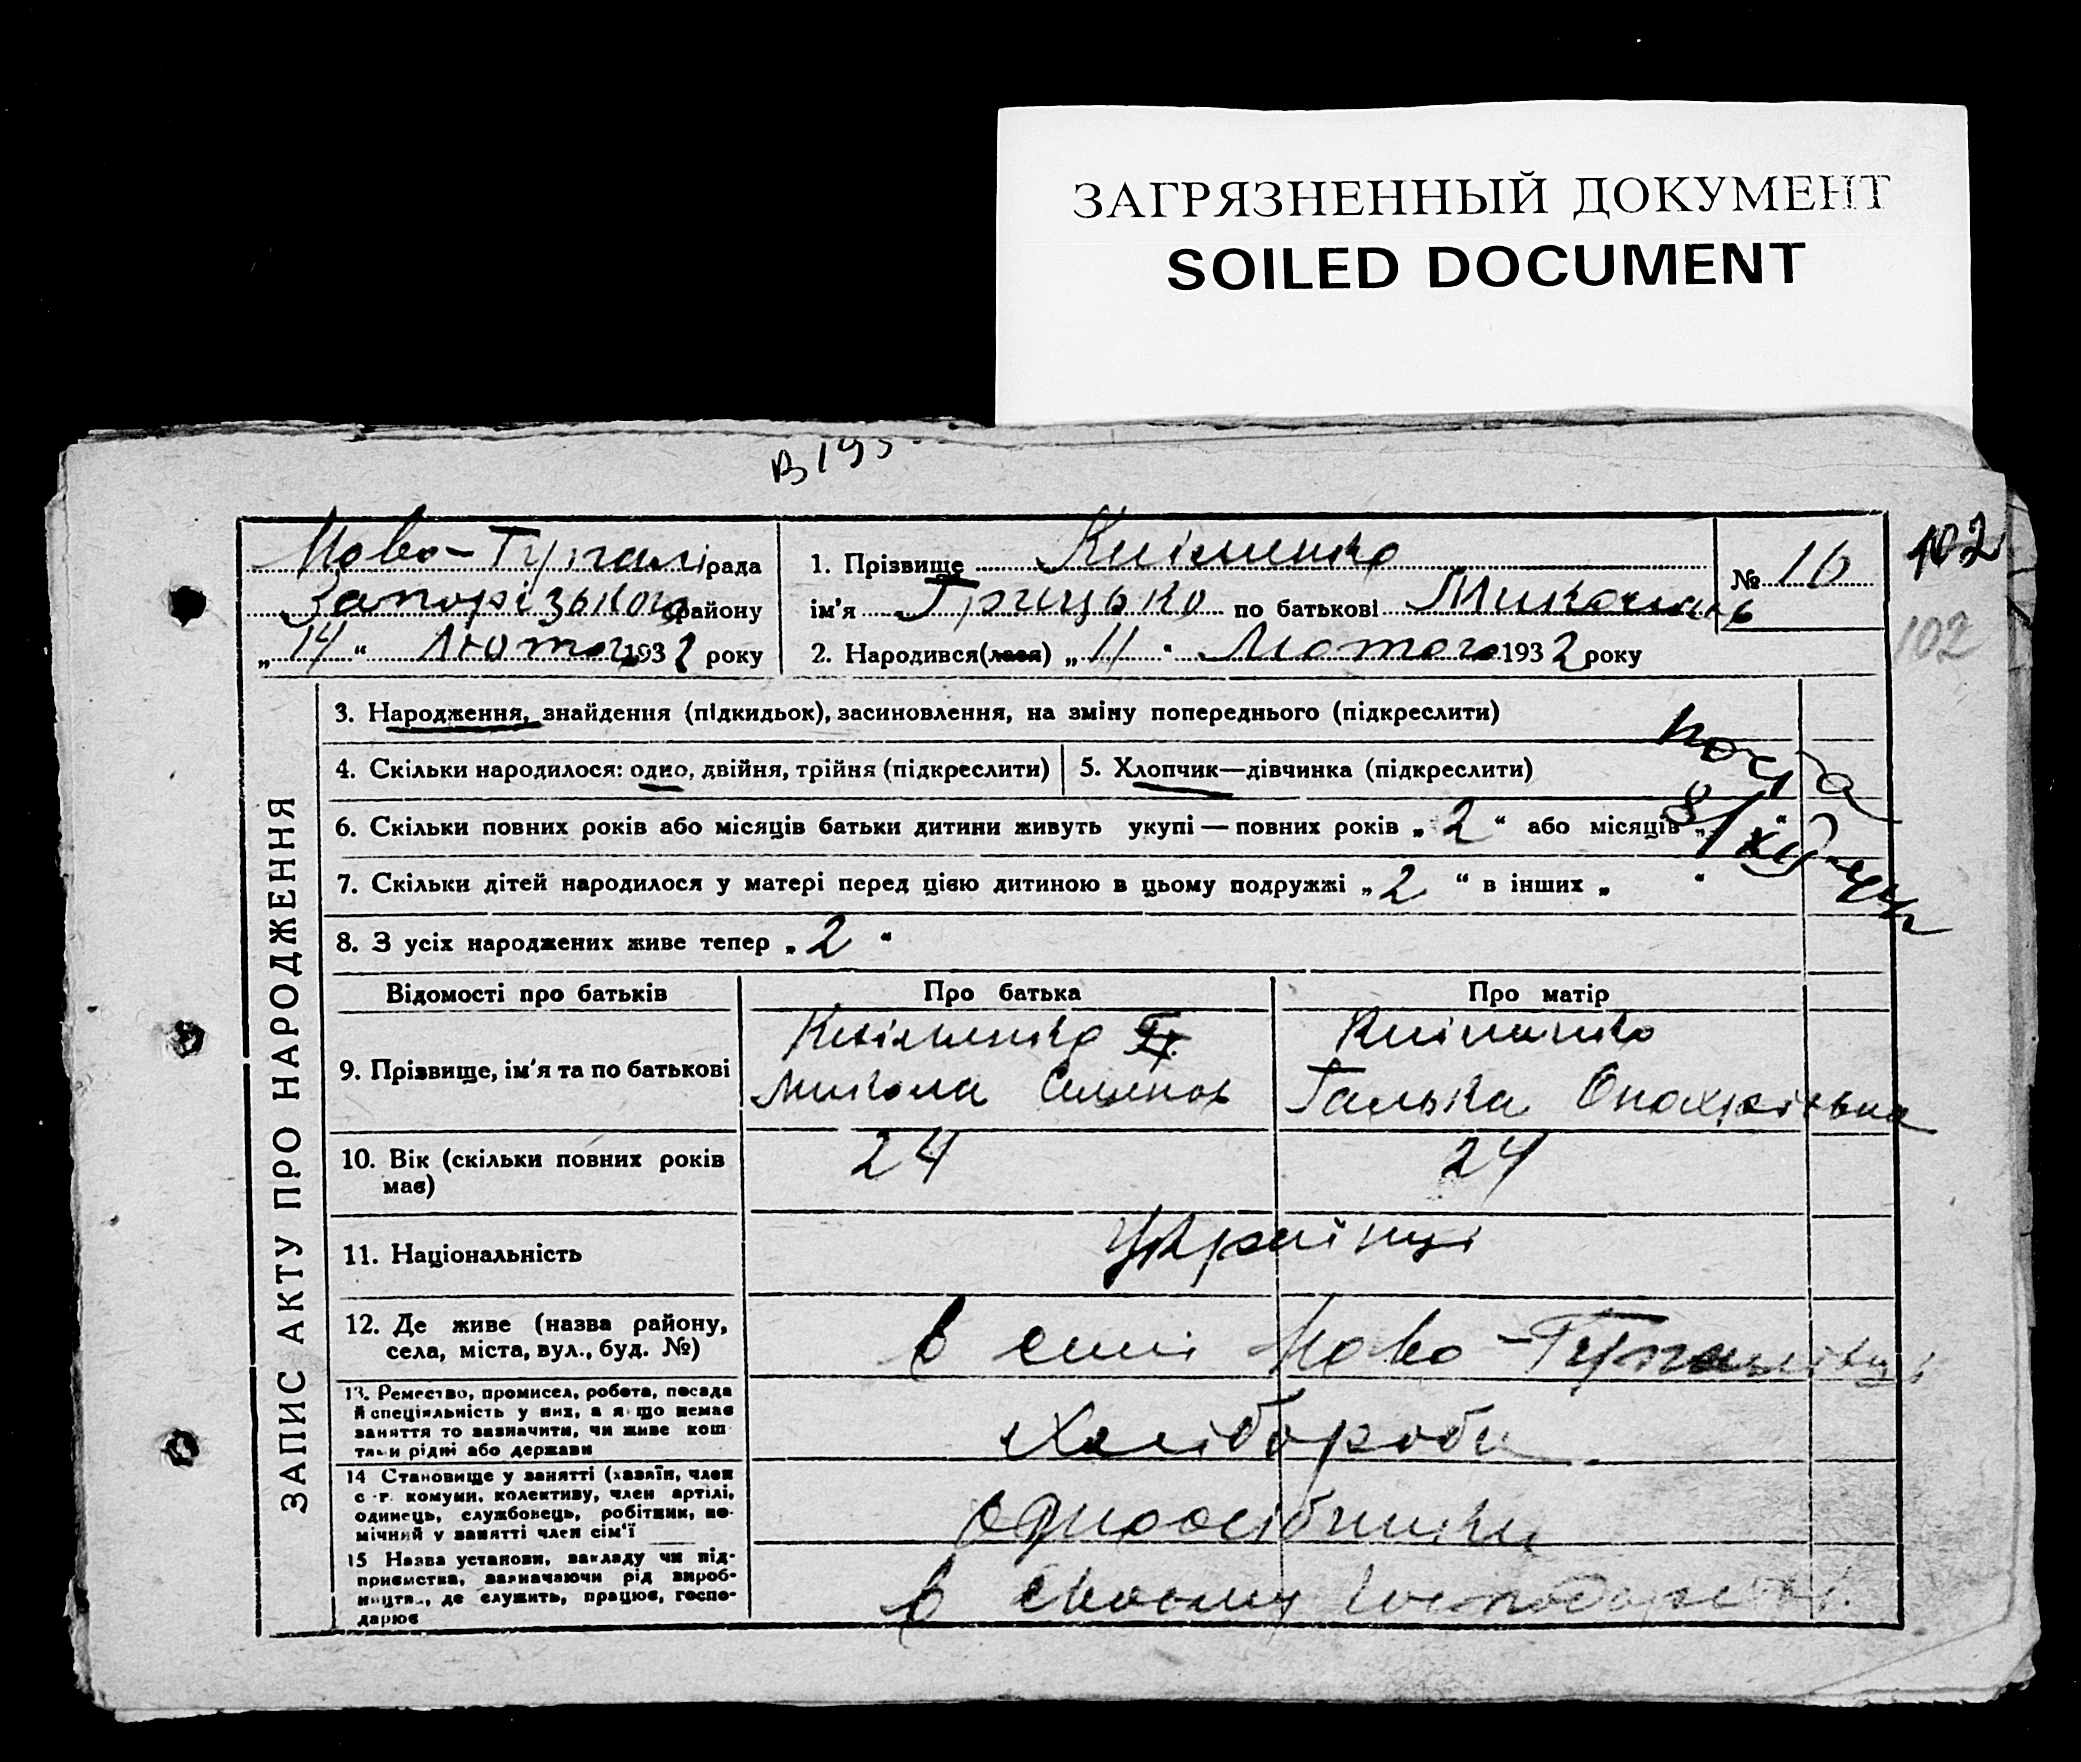 ЗАГРЯЗНЕННЫЙ ДОКУМЕНТ
SOILED DOCUMENT
В 193
Ново-Гупалі рада
Запорізького району
„14“ Лютого 1932 року
1. Прізвище Клименко
ім'я Грицько по батькові Микола
№ 16
102
102
2. Народився(лася) „11“ Лютого 1932 року
3. Народження, знайдення (підкидьок), засиновлення, на зміну попереднього (підкреслити)
4. Скільки народилося: одно, двійня, трійня (підкреслити)
5. Хлопчик—дівчинка (підкреслити)
6. Скільки повних років або місяців батьки дитини живуть укупі — повних років „2“ або місяців „ “
7. Скільки дітей народилося у матері перед цією дитиною в цьому подружжі „2“ в інших „ “
8. З усіх народжених живе тепер „2“
ЗАПИС АКТУ ПРО НАРОДЖЕННЯ
Відомості про батьків
Про батька
Про матір
9. Прізвище, ім'я та по батькові
Клименко
Микола Семенов
Клименко
Галька
10. Вік (скільки повних років має)
24
24
11. Національність
Українці
12. Де живе (назва району, села, міста, вул., буд. №)
в селі Ново-Гупалівці
13. Ремество, промисел, робота, посада
й спеціяльність у них, а якщо немає
заняття то зазначити, чи живе кош
тами рідні або держави
Хлібороби
14 Становище у занятті (хазяїн, член
с.-г. комуни, колективу, член артілі,
одинець, службовець, робітник, по-
мічний у занятті член сім'ї
одноосібники
15 Назва установи, закладу чи під-
приємства, зазначаючи рід вироб-
ництва, де служить, працює, госпо-
дарює
в своєму господарстві